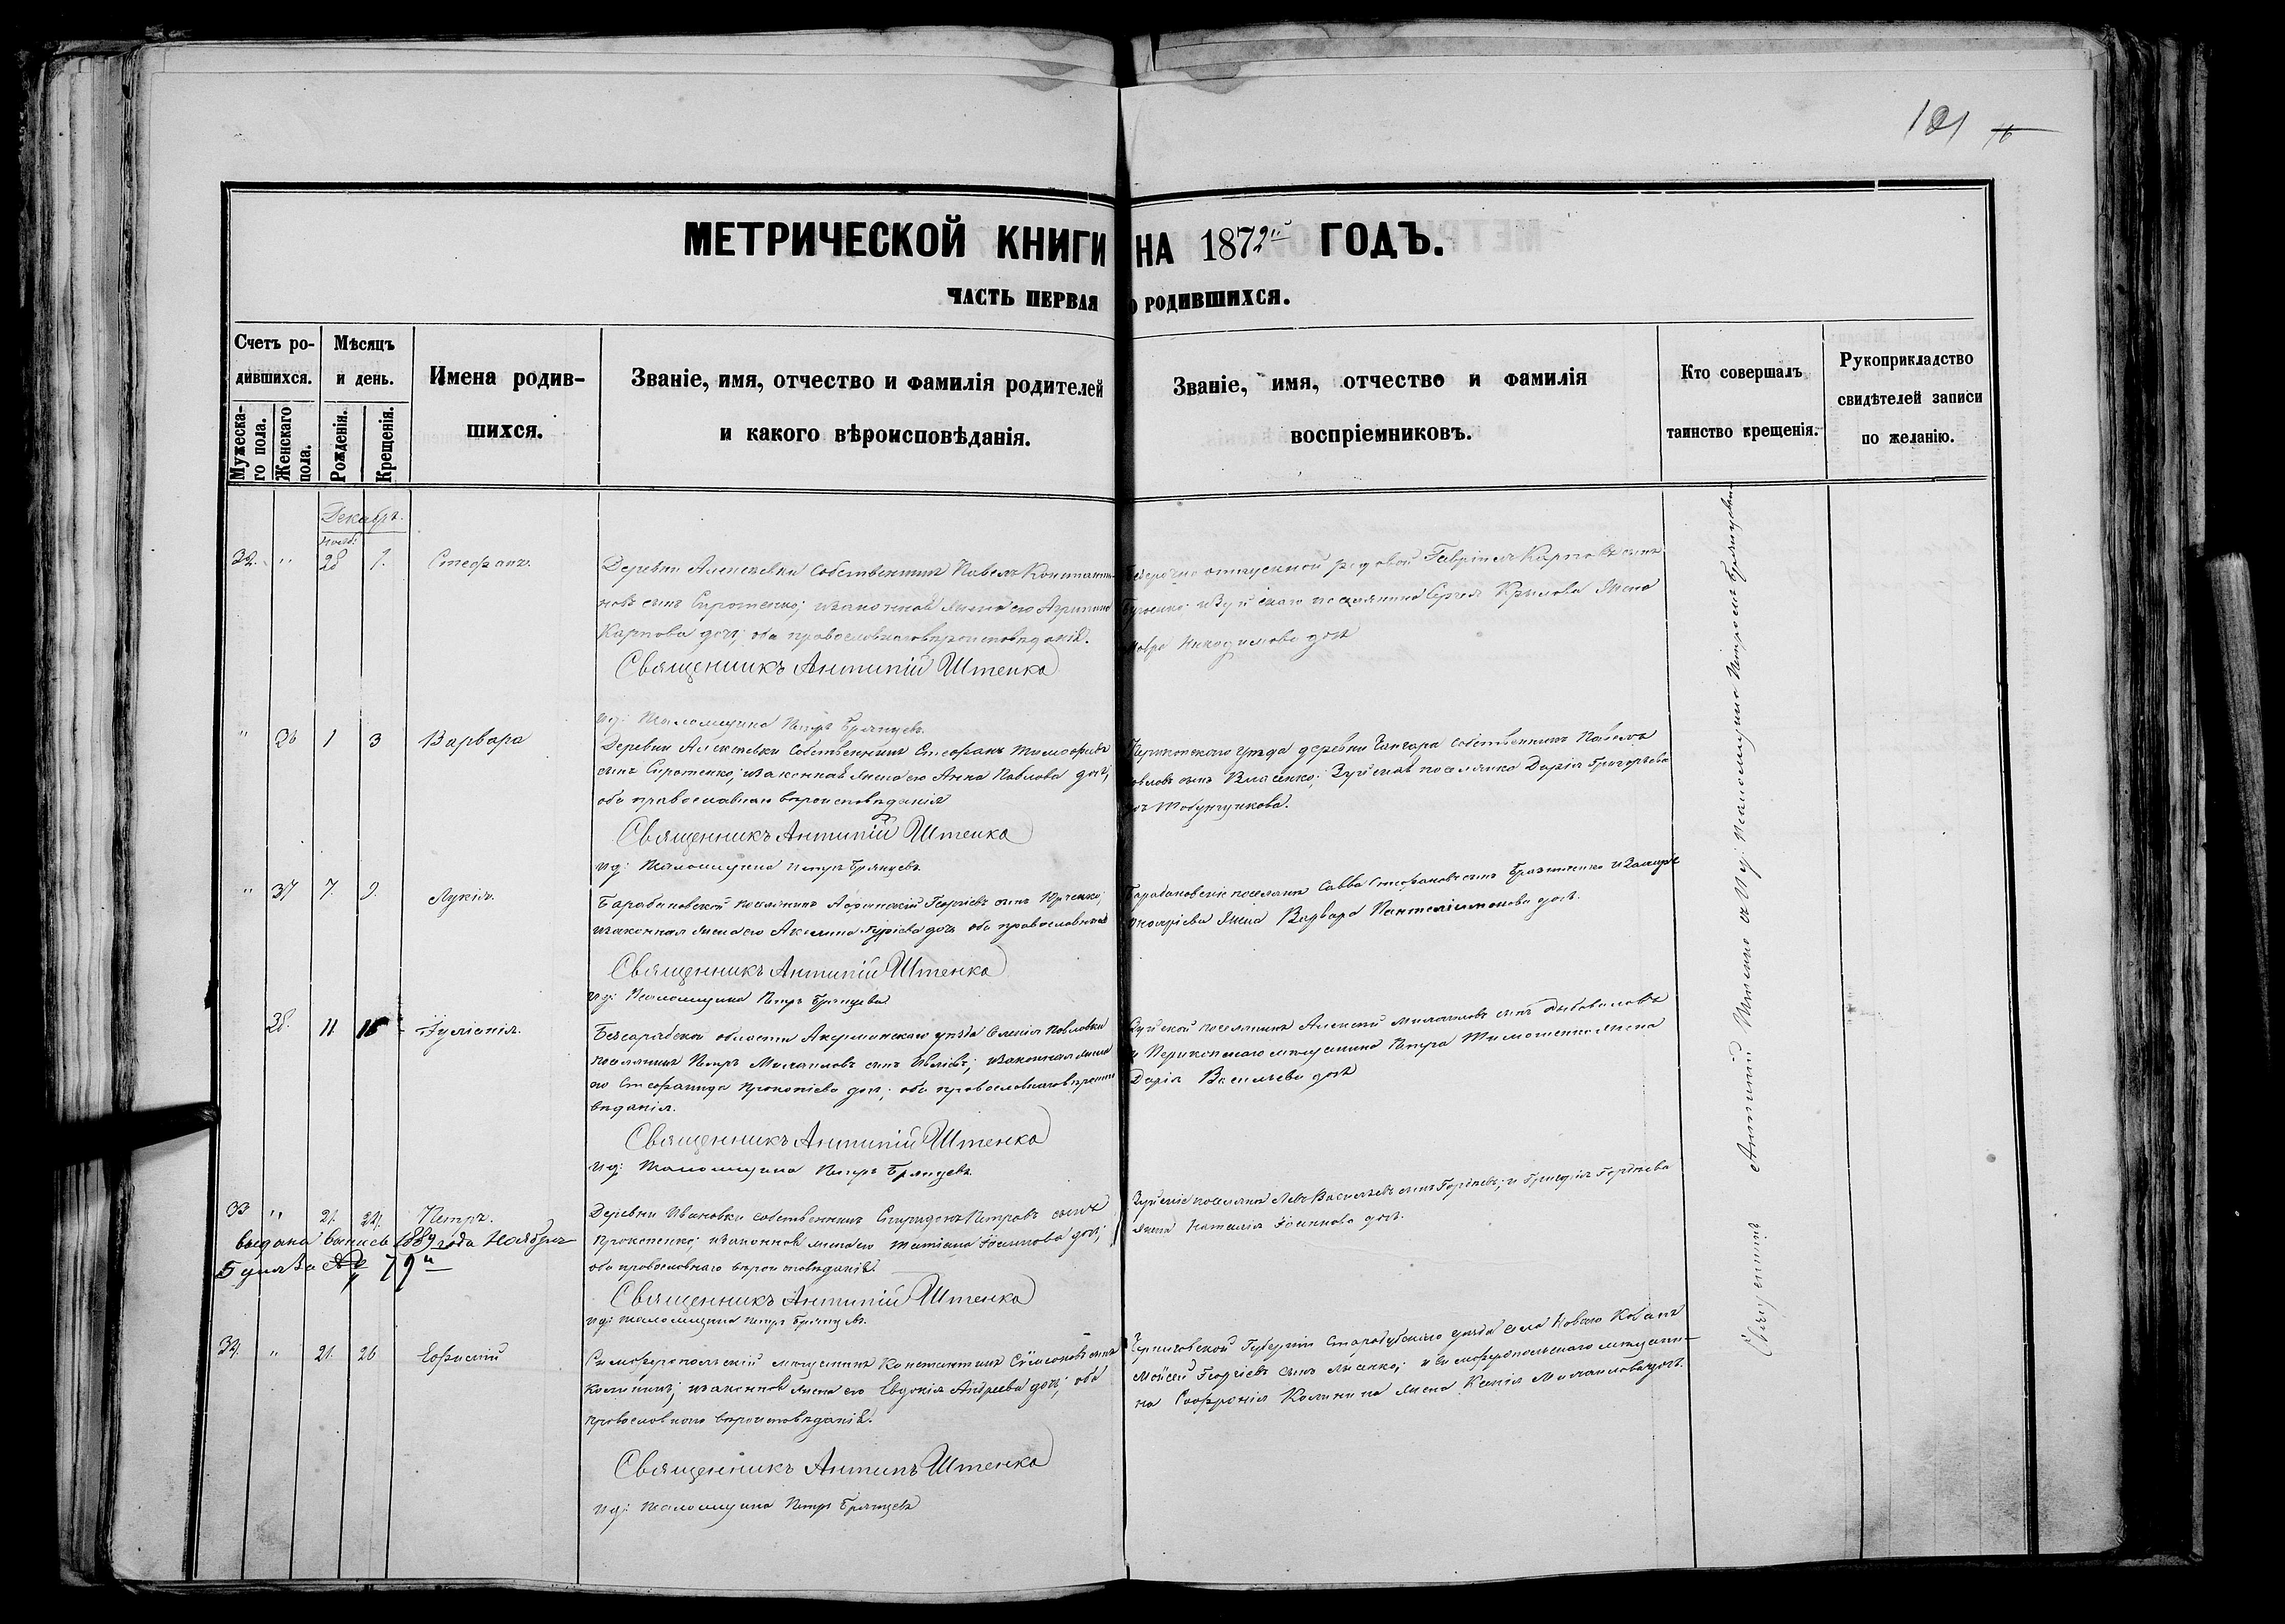 101 76
МЕТРИЧЕСКОЙ КНИГИ НА 1872й ГОДЪ.
ЧАСТЬ ПЕРВАЯ О РОДИВШИХСЯ.
Счетъ ро-
дившихся.
Мужеска-
го пола.
Женскаго
пола.
Мѣсяцъ
и день.
Рожденія.
Крещенія.
Имена родив-
шихся.
Званіе, имя, отчество и фамилія родителей
и какого вѣроисповѣданія.
Званіе, имя, отчество и фамилія
воспріемниковъ.
Кто совершалъ
таинство крещенія.
Рукоприкладство
свидѣтелей записи
по желанію.
Декабрь.
Нояб:
32. " 28 1. Стефанъ.
Деревни Алексѣевки собственникъ Павелъ Константи-
новъ сынъ Сиротенко; изаконная жена его Агрипина
Карпова доч; оба православнаго вѣроисповѣданія.
Священникъ Антипій Штенко
ид: Псаломщика Петръ Брянцевъ.
Безсрочно отпускной рядовой Гавріилъ Карповъ сынъ
изуйскаго поселянина Сергея Крылова жена
Мавра Никодимова доч
" 36 1 3 Варвара
Деревни Алексѣевки собственникъ Стефанъ Тимофѣевъ
сынъ Сиротенко; изаконная жена его Анна Павлова доч;
оба православнаго вѣроисповѣданія
Священникъ Антипій Штенко
ид: Псаломщика Петръ Брянцевъ.
Перекопскаго уѣзда деревни Чангара собственникъ Павелъ
Павловъ сынъ Власенко; Зуйская поселянка Дарія Григорьева
доч Табунщикова.
" 37 7. 9. Лукія.
Барабановской поселянинъ Афанасій Георгіевъ сынъ Юрченко;
изаконная жена его Акилина Гуріева доч оба православныя
Священникъ Антипій Штенко
ид: Псаломщика Петръ Брянцевъ
Барабановскіе поселяне Савва Стефановъ сынъ
жена Варвара Пантелиимонова доч.
38. 11 15 Іуліанія.
Безсарабской области Акерманскаго уѣзда селенія Павловки
поселянинъ Петръ Михаиловъ сынъ изаконная жена
его Стефанида Прокопіева доч; оба православнаго вѣроиспо-
вѣданія.
Священникъ Антипій Штенко
ид: Псаломщика Петръ Брянцевъ
Зуйской поселянинъ Алексѣй Михаиловъ сынъ
и Перекопскаго мѣщанина Петра Тимошенко жена
Дарія Васильева доч
33 " 21. 24. Петръ.
выдана выпись 1889 года Ноября
5 дня за № 79м
Деревни Ивановки собственникъ Спиридонъ Петровъ сынъ
Прокопенко; изаконная жена его Татіана Іоаннова доч;
оба православнаго вѣроисповѣданія.
Священникъ Антипій Штенко
ид: Псаломщика Петръ Брянцевъ.
Зуйскіе поселяне Левъ Васильевъ сынъ Гордѣевъ; и Григорія Гордѣева
жена Наталія Іоаннова доч.
34. " 21. 26 Евфимій
Симферопольскій мѣщанинъ Константинъ Симеоновъ сынъ
Калининъ; изаконная жена его Евдокія Андреева доч; оба
православнаго вѣроисповѣданія.
Священникъ Антипъ Штенко
ид: Псаломщика Петръ Брянцевъ
Черниговской Губерніи Стародубскаго уѣзда села Новаго
Моисей Георгіевъ сынъ Лысенко; и симферопольскаго мѣщани-
на Софронія Калинина жена Ксенія Михаилова доч.
Священникъ Антипій Штенко съ И д: Псаломщика Петромъ Брянцевымъ